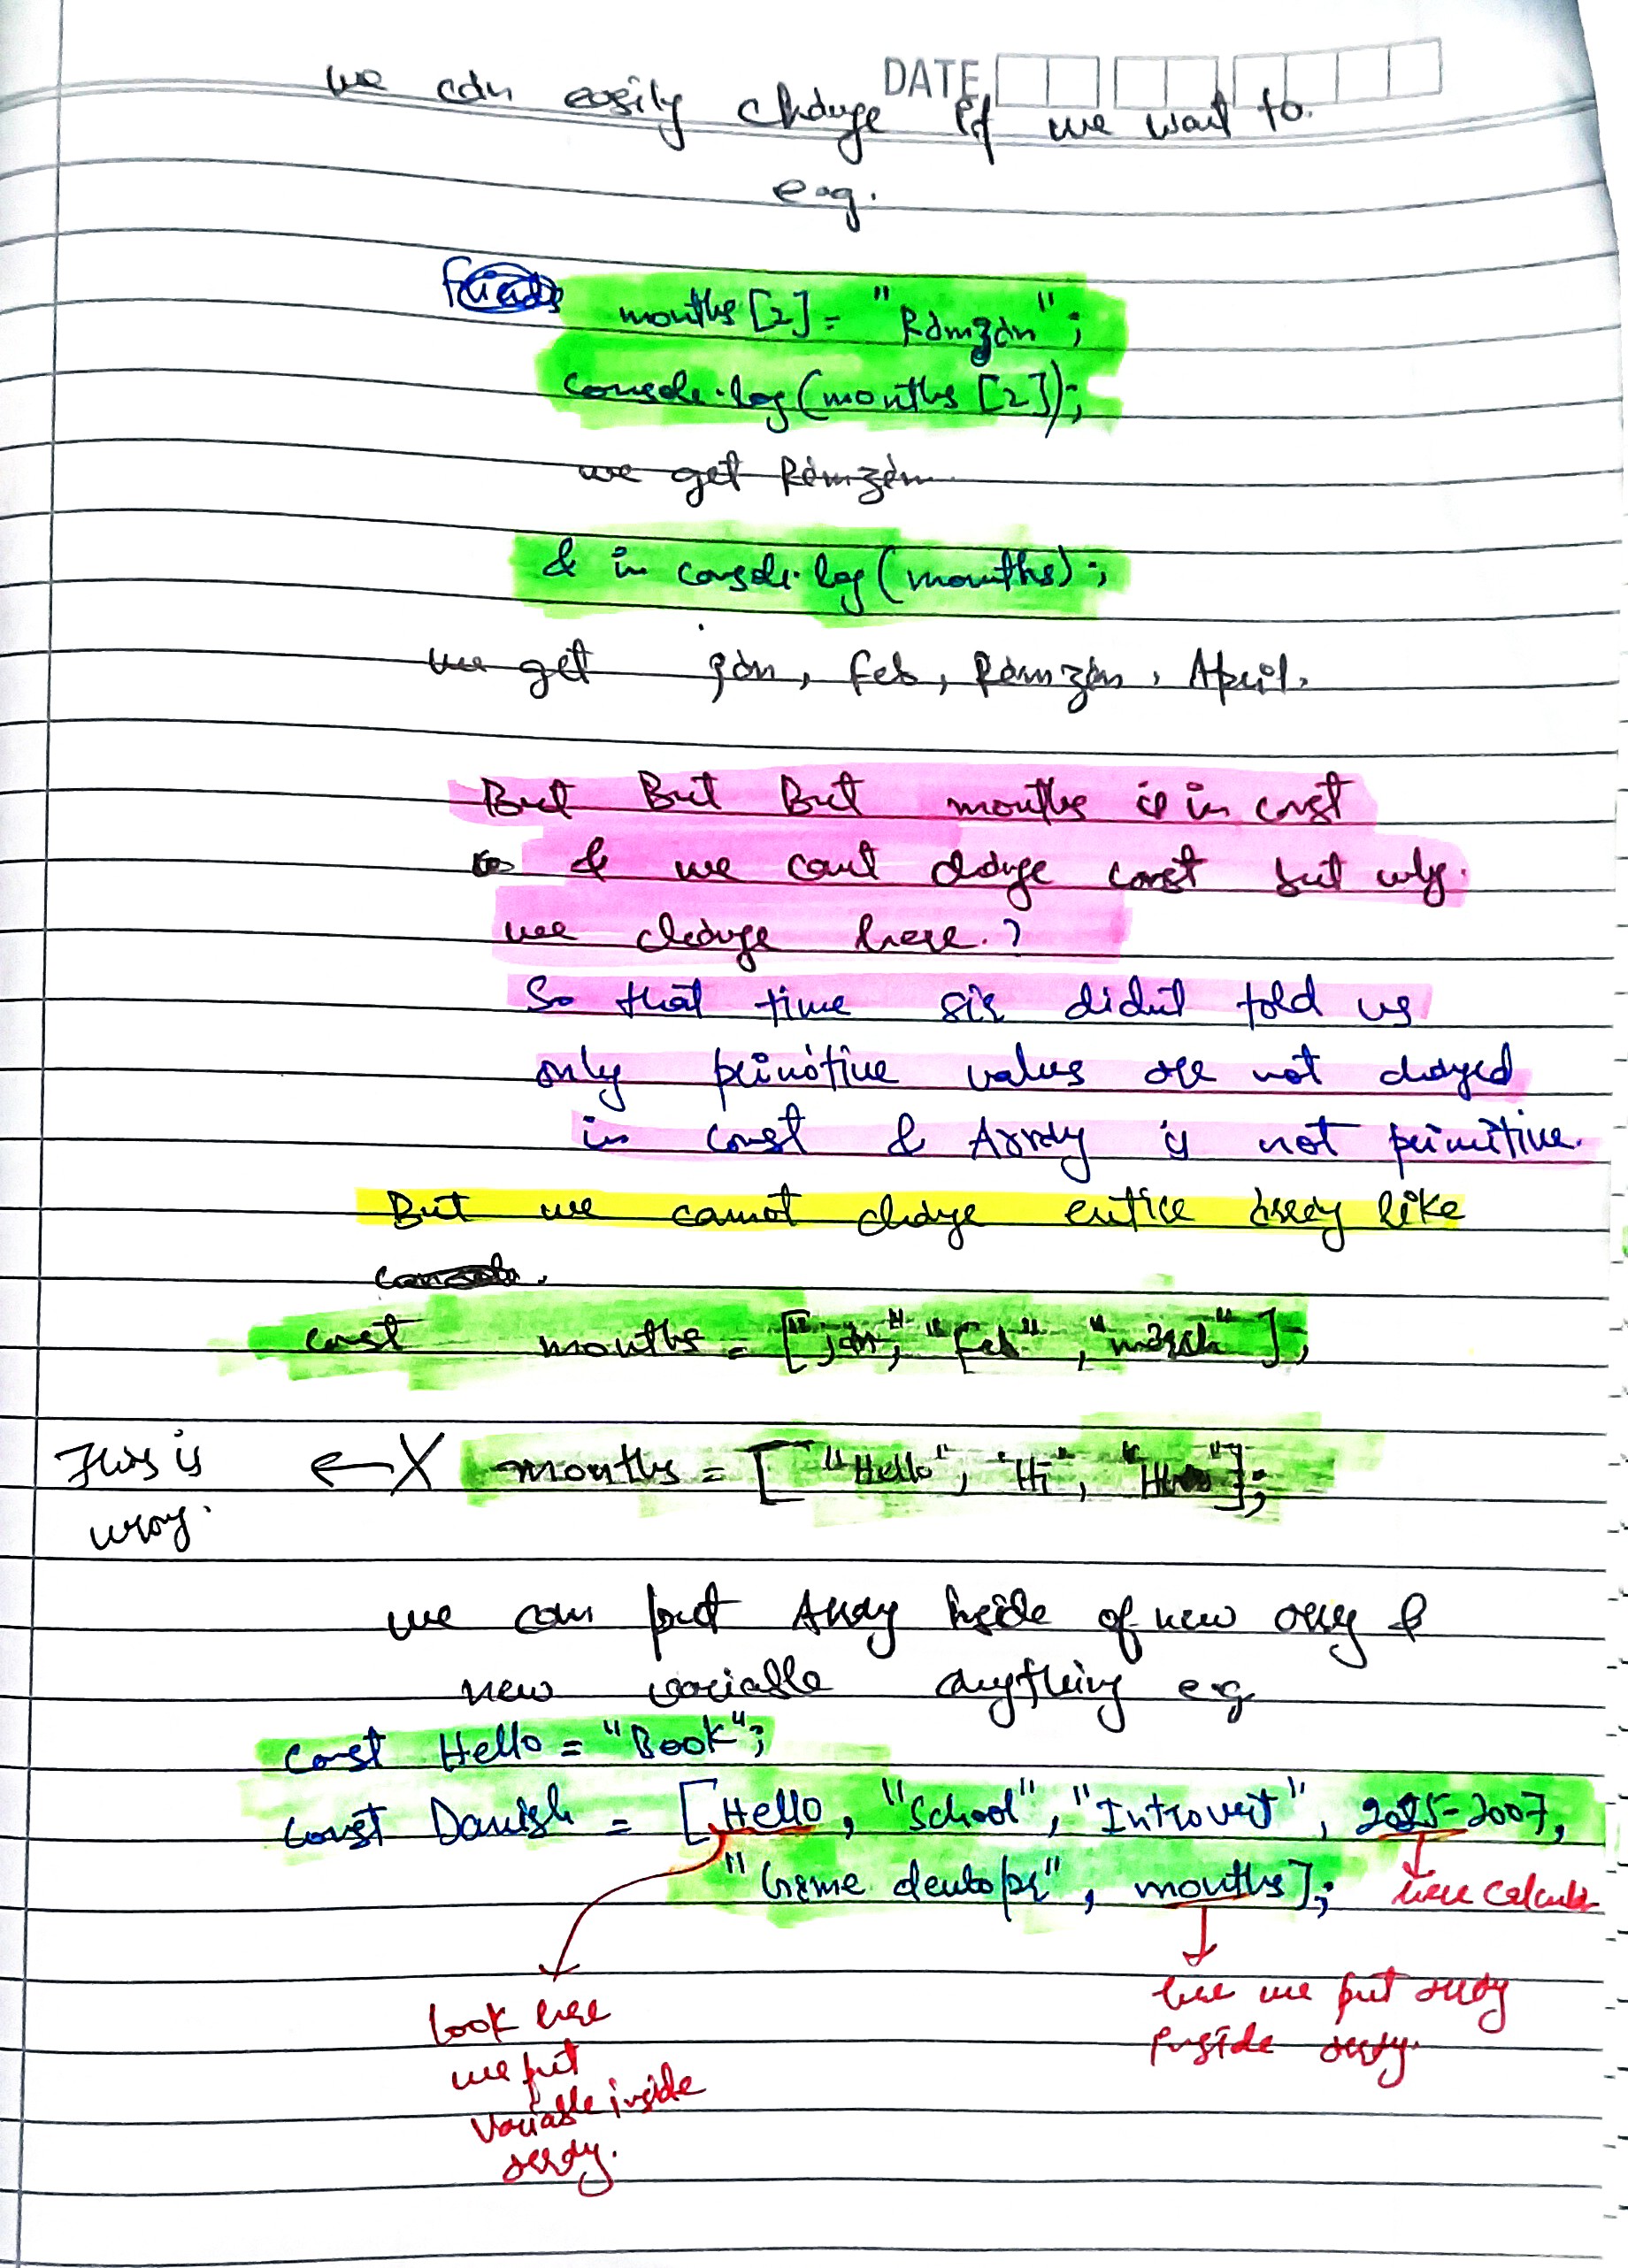 DATE
we can easily change if we want to.
e.g.
months[2] = "Ramzan";
console.log(months[2]);
we get Ramzan
& in console.log(months);
we get jan, feb, Ramzan, April.
But But But months is in const
& we cant change const but why
we change here.?
So that time sir didnt told us
only primitive values are not changed
in const & Array is not primitive.
But we cannot change entire array like
const months = ["jan", "Feb", "march"];
This is ← X months = ["Hello", "Hi",
wrong.
we can put Array inside of new array &
new variable anything e.g
const Hello = "Book";
const Danish = [Hello, "School", "Introvert", 2025-2007,
"Game", months]; here
look here
we put
variable inside
array.
here we put array
inside array.